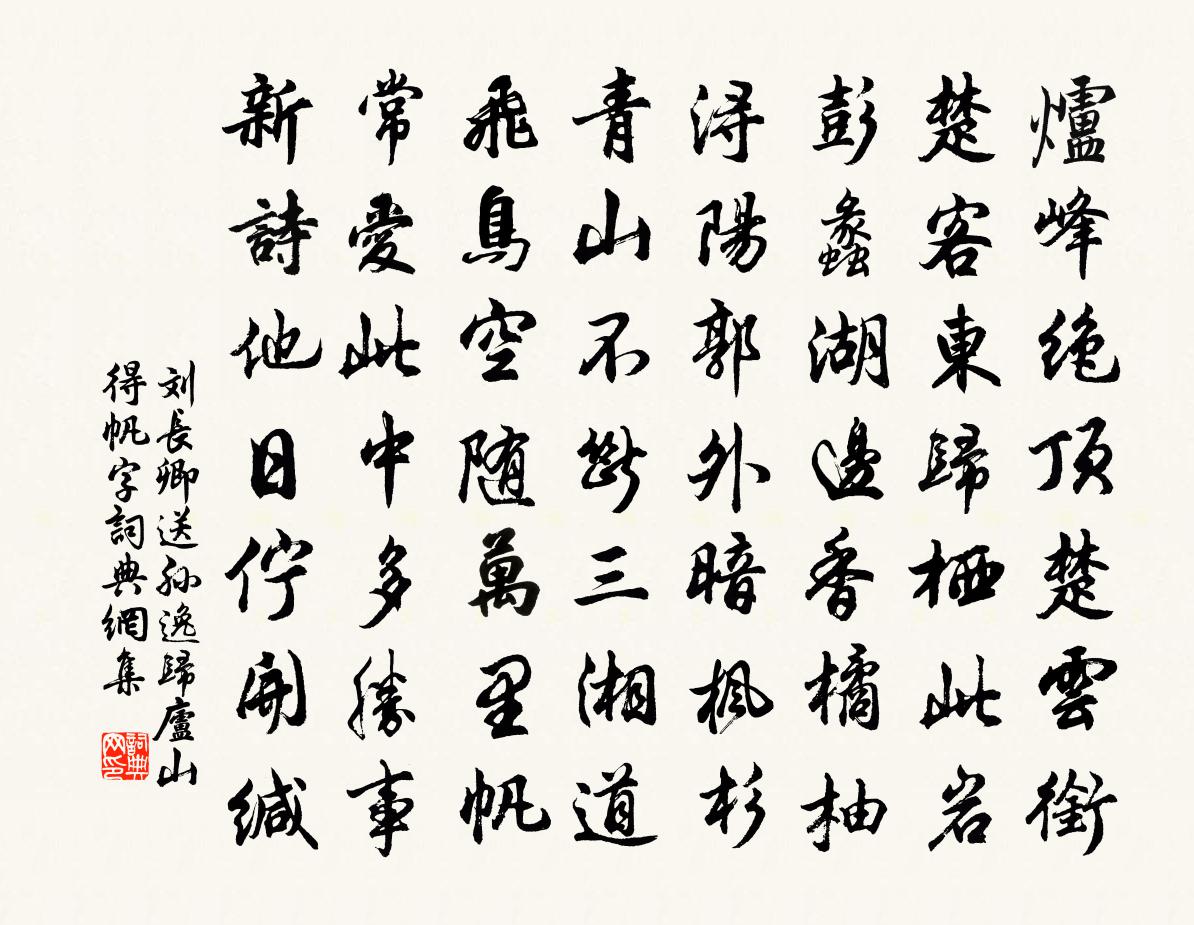 爐峰绝頂楚雲銜
楚客東歸栖此岩
彭蠡湖邊香橘柚
潯陽郭外暗楓杉
青山不斷三湘道
飛鳥空随萬里帆
常愛此中多勝事
新詩他日佇開緘
刘長卿送孙逸歸廬山
得帆字詞典網集
詞典网印